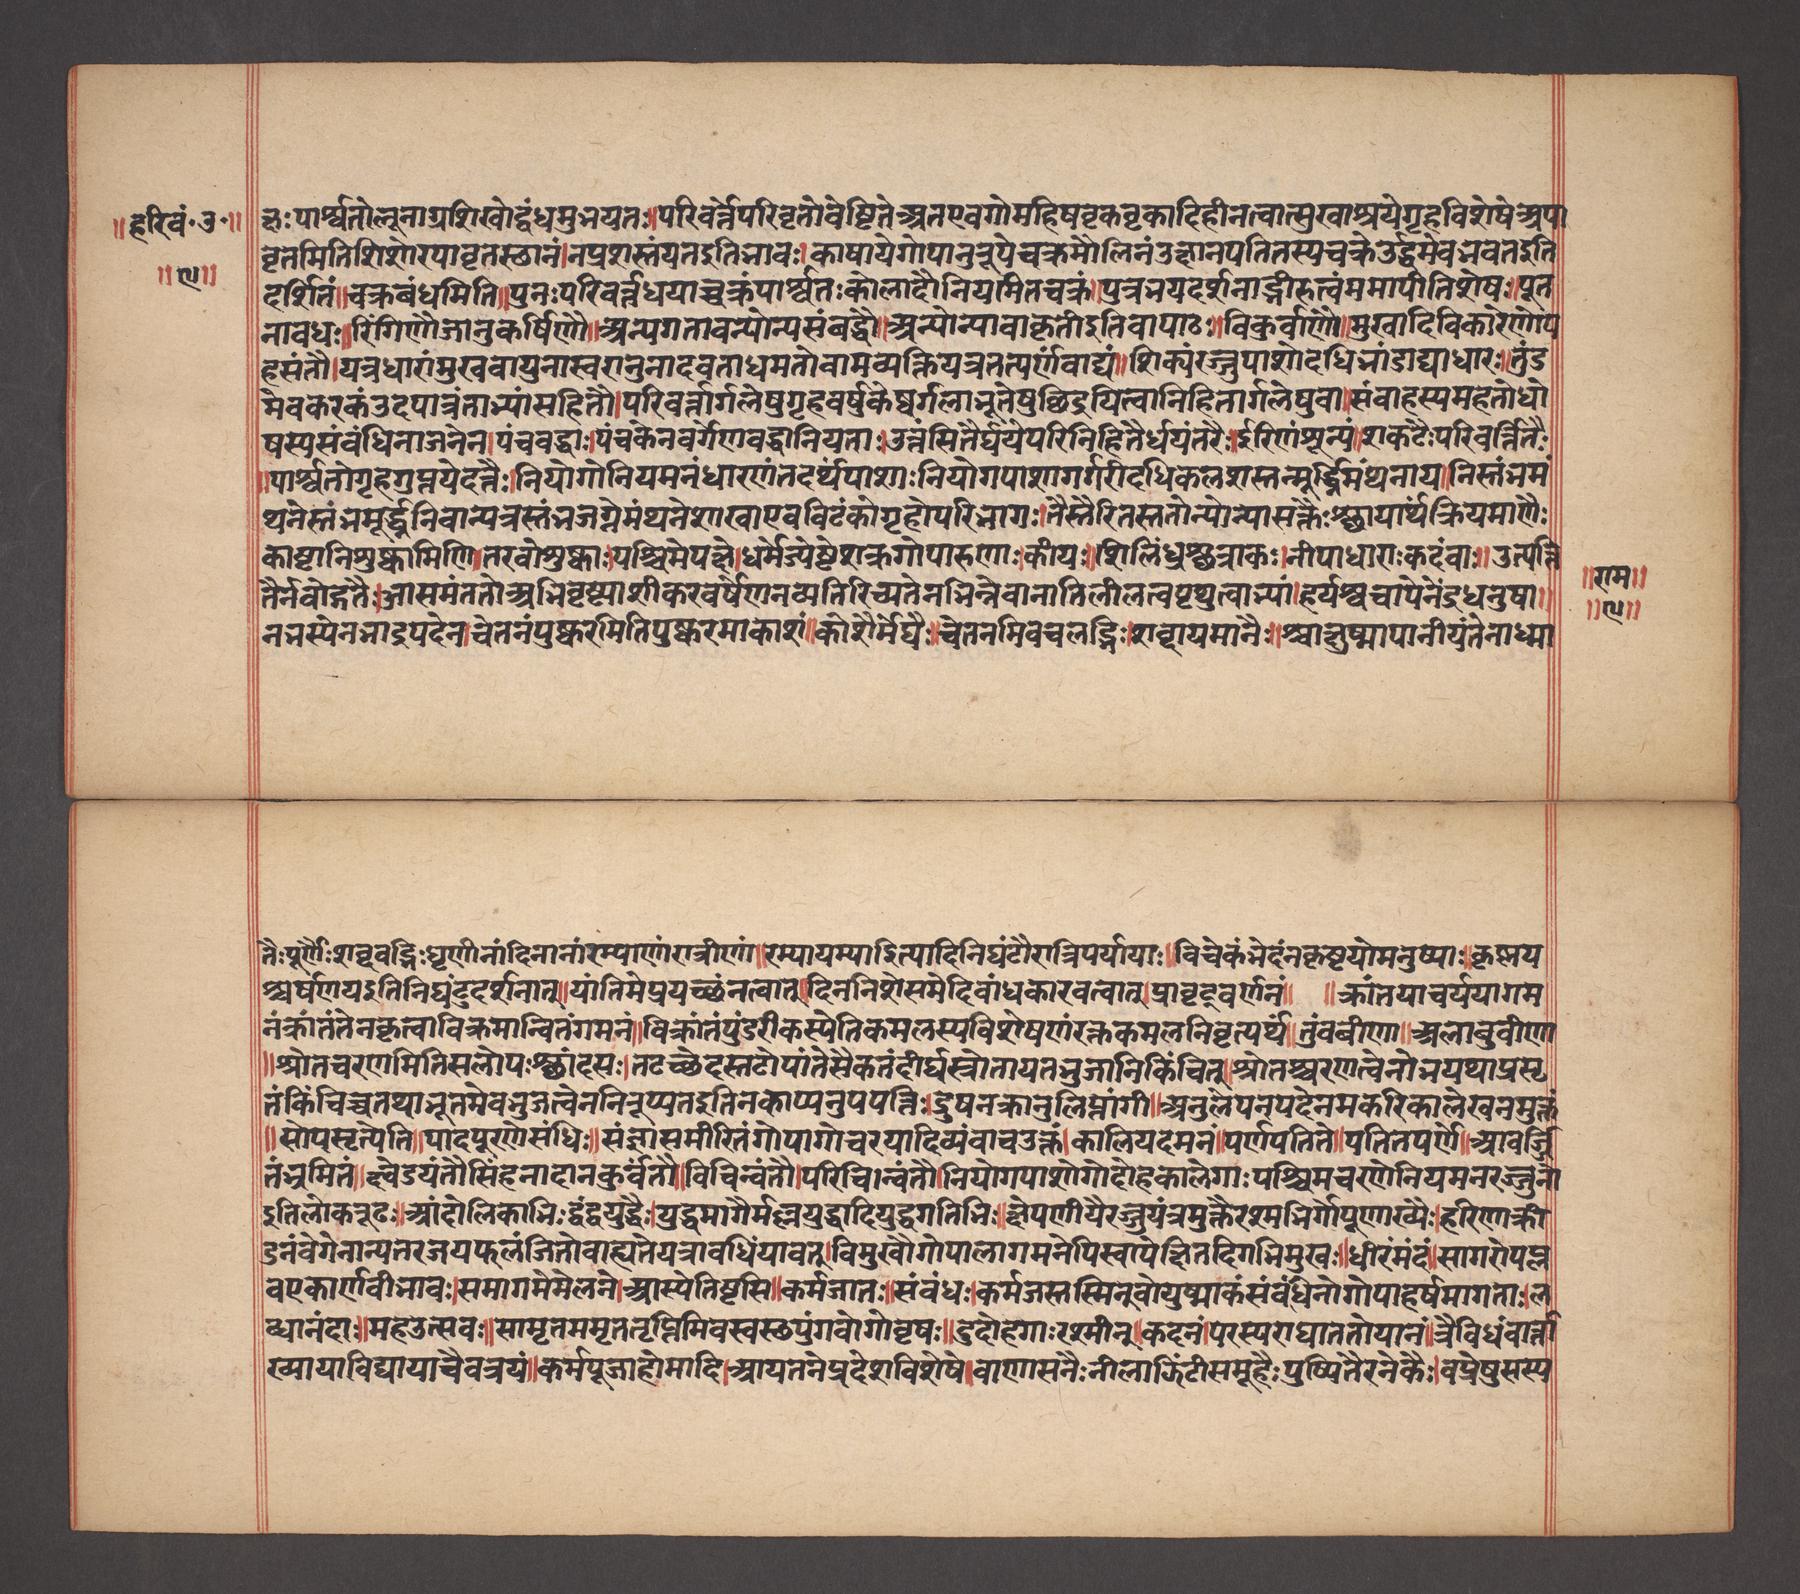 ॥हरिवं॰उ॰॥
॥९॥
ह्नः पार्श्वतोलूनाग्रशिखोद्वंधमुभयतः॥परिवर्त्तपरिवृतोवेष्टितेअतएवगोमहिषवृकवृकादिहीनत्वात्सुखाश्रयेगृहविशेषेअपा
वृतमितिशिशोरपावृतस्छानं।नप्रशस्तंयतइतिभावः।काषायेगोपानुरूपेचक्रमौलिनंउत्तानपतितस्यचक्रेऊर्द्धमेवभवतइति
दर्शितं॥चक्रबंधमिति॥पुनःपरिवर्त्तधयाच्चक्रंपार्श्वतःकीलादौनियमितचक्रं।पुत्रभयदर्शनाद्भीरुत्वंममापीतिशेषः॥पूत
नावधः॥रिंगिणौजानुकर्षिणौ॥अन्यगतावन्योन्यसंबद्धौ॥अन्योन्यावाकृतीइतिवापाठः॥विकुर्वाणौ॥मुखादिविकारेणोप
हसंतौ।यत्रधारांमुखवायुनास्वरानुनादवताधमतोवामव्यक्तियत्रतत्पर्णवाद्यं॥शिक्यंरज्जुपाशोदधिभांडाद्याधारः॥तुंड
मेवकरकंउदपात्रंताभ्यांसहितौ।परिवर्त्तार्गलेषुगृहवर्षुकेष्वर्गलाभूतेषुछिद्रयित्वानिहितार्गलेषुवा॥संवाहस्यमहतोधो
षस्यसंबंधिनाजनेन।पंचबद्धाः।पंचकेनवर्गेणबद्धानियताः।उन्नंसितैर्घयेपरिनिहितैर्धयंतरैः॥ईरिणंशून्यं॥शकटैःपरिवर्त्तितैः
॥पार्श्वतोगृहगुप्तयेदत्तैः।नियोगोनियमनंधारणंतदर्थपाशाः।नियोगपाशागर्गरीदधिकलशास्तन्मूर्द्ध्निमंथनाय॥निस्तंभमं
थनेस्तंभमूर्द्धनिवान्यत्रस्तंभजग्नेमंथनेशाखाएवविटंकोगृहोपरिभागः।तैस्तैरितस्ततोन्योन्यासक्तैःश्छायार्थक्रियमाणैः
काष्टानिशुष्काामिणि।तरवोशुष्काः।पश्चिमेपक्षे।धर्मेज्येष्टेशक्रगोपारुणाः।कीयः॥शिलिंध्रश्छत्राकः।नीपाधाराःकदंबाः॥उत्पति
तैर्नवोद्गतैः।आसमंततोअभिवृष्ट्याशीकरवर्षेणनव्यतिरिच्यतेनभिन्नेवानातिलीलत्वपृथुत्वाभ्यां।हर्यश्वचापेनेंद्रधनुषा॥
नभस्येनभाद्रपदेन।चेतनंपुष्करमितिपुष्करमाकाशं॥कोशैर्मेघैः॥चेतनमिवचलद्भिः।शब्दायमानैः॥श्वाभ्रुष्मापानीयंतेनाध्मा
॥राम॥
॥९॥
तैःपूर्णैःशब्दवद्भिःघृणीनांदिनानांरम्याणांरात्रीणां॥रम्यायम्याइित्यादिनिघंटौरात्रिपर्यायाः॥विचेकंभेदंनकृष्टयोमनुष्याः॥कृष्टय
श्चर्षणयइतिनिघंटुदर्शनात्॥यांतिमेप्रयच्छंनत्वात्॥दिननिशेसमेदिवांधकारवत्वात्॥प्रावृट्वर्णनं॥ ॥क्रांतयाचर्ययागम
नंक्रांतंतेनकृत्वाविक्रमान्वितंगमनं॥विक्रांतंपुंडरीकस्येतिकमलस्यविशेषणंरक्तकमलनिवृत्यर्थं॥तुंबवीणा॥अलाबुवीणा
॥श्रोतचरणमितिसलोपःश्छांदसः॥तटच्छेदस्तटोपांतेसैकतंदीर्घस्त्रोतायतभुजानिकिंचित्॥श्रोतश्चरणत्वेनोभयथाप्रसृ
तंकिंचिच्चतथाभूतमेवभुजत्वेननिरूप्यतइतिनकाप्यनुपपत्तिः॥द्रुषनक्रानुलिप्तांगी॥अनुलेपनपदेनमकरिकालेखनमुक्तं
॥सोपसृत्येति॥पादपूरणेसंधिः॥संज्ञासमीरितंगोपागोचरयादिव्यंवाचउक्तं।कालियदमनं॥पर्णपतिते॥पतितपर्णे॥आवर्जि
तंभ्रमितं॥क्ष्वेडयंतौसिंहनादानकुर्वंतौ॥विचिन्वंतौ॥परिचिन्वंतौ॥नियोगपाशोगोदोहकालेगाःपश्चिमचरणेनियमनरज्जुनो
इतिलोकरूढः॥आंदोलिकाभिः॥द्वंद्वयुद्धैः॥युद्धमार्गैर्मल्लयुद्धादियुद्धगतिभिः॥क्षेपणीयैरज्जुयंत्रमुक्तैरश्मभिर्गोपूणाख्यैः॥हरिणाक्री
डनंवेगेनान्यतरजयफलंजितोवाह्यतेयत्रावधिंयावत्॥विमुखौगोपालागमनेपिस्वापेक्षितदिगभिमुखः॥धीरंमंदं॥सागरोपप्ल
वएकार्णवीभावः।समागमेमेलने।आस्पेतिष्टसि॥कर्मजातः॥संबंधः।कर्मजस्तस्मिनुवोयुष्माकंसंबंधिनोगोपाहर्षमागताः॥ल
ब्धानंदाः॥महउत्सवः॥सामृतममृततृप्तिमिवस्वस्छपुंगवोगोवृषः॥दुदोहगाःरश्मीन्॥कदनं॥परस्पराघाततोयानं॥त्रैविधंवार्त्ता
ख्यायाविद्यायाश्चैवत्रयं॥कर्मपूजाहोमादि॥आयतनेप्रदेशविशेषे॥बाणासनैःनीलाझिंटीसमूहैःपुष्पितैरनेकैः॥वप्रेषुसस्य